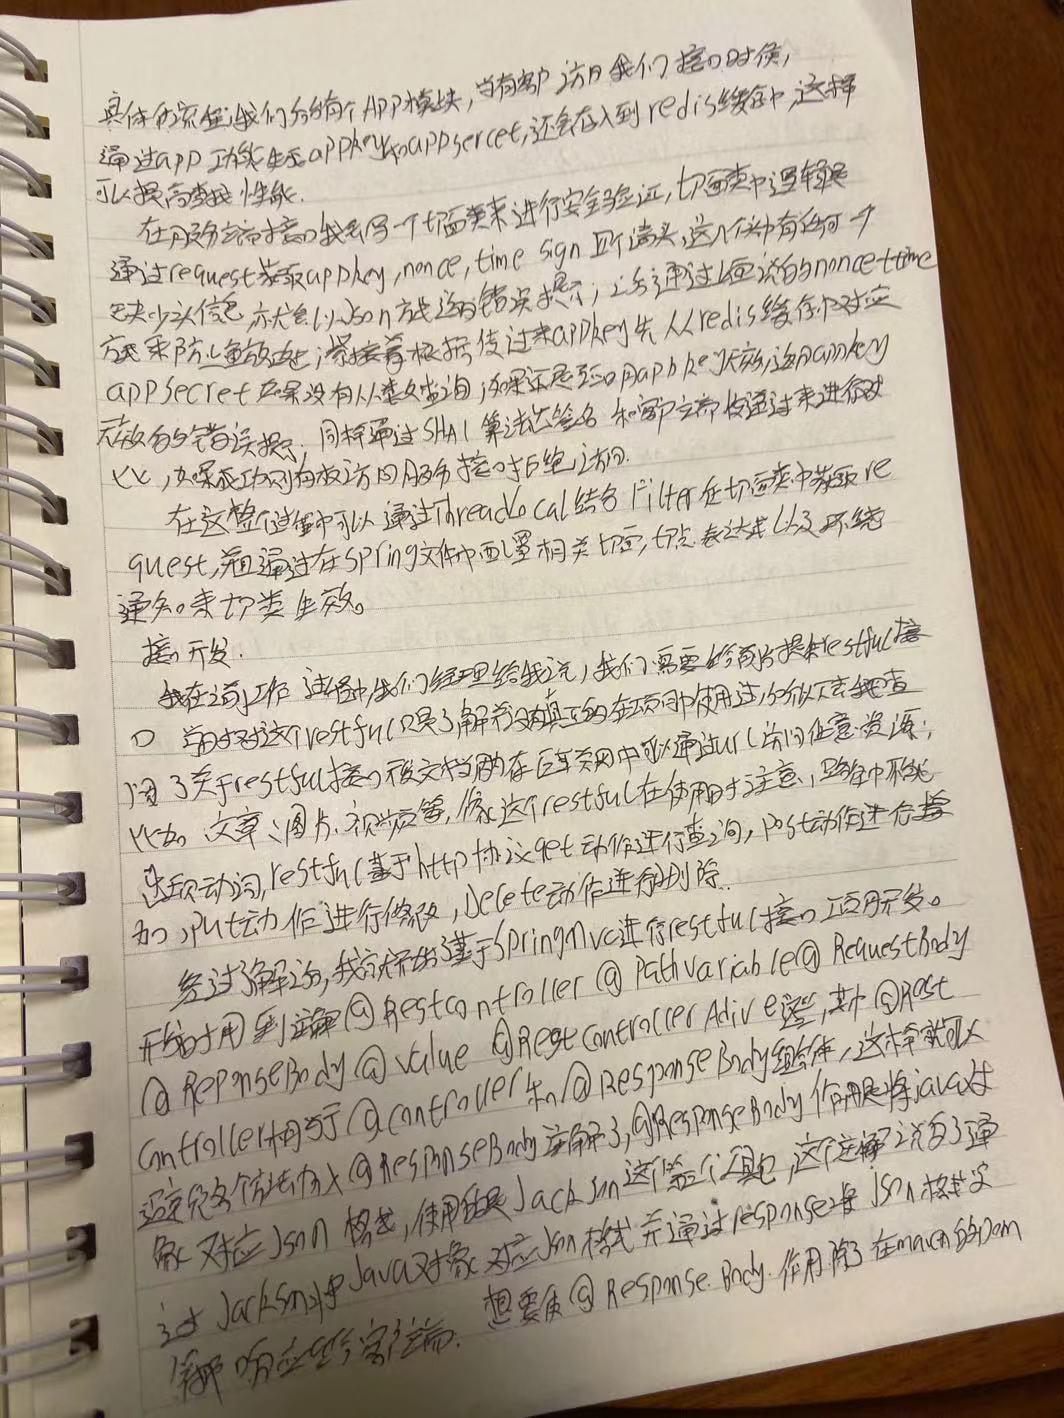 具体的流程：我们公司有个APP模块，当有客户访问我们接口时候，
通过app功能生成appkey和appsercet，还会存入到redis缓存中，这样
可以提高查找性能.
在服务端接口我会写一个切面类来进行安全验证，切面类中逻辑是
通过request获取appkey,nonce,time sign 四个请求头，这几个头中有任何一个
缺少头信息，就会以Json方式返回错误提示；之后通过上面说的nonce+time
方式来防止重放攻击；紧接着根据传过来appkey先从redis缓存中对应
appsecret如果没有从数据查询，如果还是appkey无效，返回appkey
无效的错误提示，同样通过SHA1算法签名和客户端传递过来进行对
比，如果成功则有权访问服务接口拒绝访问.
在这整个过程中可以通过ThreadLocal结合Filter在切面类中获取re
quest,并且通过在spring文件中配置相关切面，切点表达式以及环绕
通知。来切类生效。
接口开发.
我在之前工作过程中，我们经理给我说，我们需要给商户提供restful接
口 当时对这个restful只是了解并没有真正的在项目中使用过，所以下去我查
阅了关于restful接口 文档 在互联网中可以通过url访问任意资源；
比如 文章、图片、视频等，这个restful在使用时注意，路径中不能
出现动词，restful基于http协议get动作进行查询，post动作进行增
加，put动作进行修改，Delete动作进行删除.
经过了解之后，我就开始了基于SpringMvc进行restful接口项目开发。
开始时用到注解@RestController @PathVariable@RequestBody
@ReponseBody @value @RestControllerAdive这些，其中@Rest
Controller相当于@controller和@ResponseBody组合体，这样就可以
避免各个方法加入@ResponseBody注解了，@ResponseBody作用是将java对
象对应Json格式，使用的是Jackson这个第三个工具包，这个注解之后通
过Jackson将Java对象对应Json格式并通过response将json格式
响应给客户端. 想要使@Response.Body.作用除在maven的pom